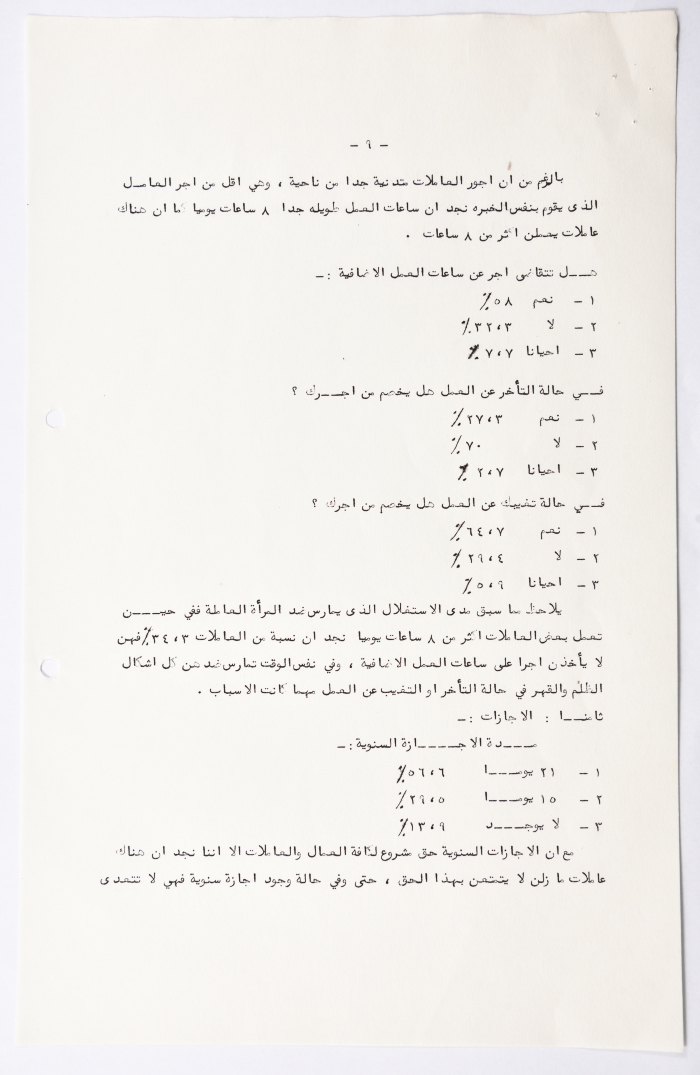 - ٩ -
بالرغم من ان اجور العاملات متدنية جدا من ناحية ، وهي اقل من اجر العامـل
الذى يقوم بنفس الخبره نجد ان ساعات العمل طويله جدا ٨ ساعات يوميا كما ان هناك
عاملات يعملن اكثر من ٨ ساعات .
هـــل تتقاضى اجر عن ساعات العمل الاضافية :-
١ - نعم ٥٨٪
٢ - لا ٣٢،٣٪
٣ - احيانا ٧،٧٪
فـــي حالة التأخر عن العمل هل يخصم من اجـــرك ؟
١ - نعم ٢٧،٣٪
٢ - لا ٧٠٪
٣ - احيانا ٢،٧٪
فـــي حالة تغيبك عن العمل هل يخصم من اجرك ؟
١ - نعم ٦٤،٧٪
٢ - لا ٢٩،٤٪
٣ - احيانا ٥،٩٪
يلاحظ مما سبق مدى الاستغلال الذى يمارس ضد المرأة العاملة ففي حيـــــن
تعمل بعض العاملات اكثر من ٨ ساعات يوميا نجد ان نسبة من العاملات ٣٤،٣٪ فهن
لا يأخذن اجرا على ساعات العمل الاضافية ، وفي نفس الوقت تمارس ضد هن كل اشكال
الظلم والقهر في حالة التأخر او التغيب عن العمل مهما كانت الاسباب .
ثامنـــا : الاجازات :-
مـــدة الاجـــــازة السنوية :-
١ - ٢١ يومـــا ٥٦،٦٪
٢ - ١٥ يومـــا ٢٩،٥٪
٣ - لا يوجـــد ١٣،٩٪
مع ان الاجازات السنوية حق مشروع لكافة العمال والعاملات الا اننا نجد ان هناك
عاملات ما زلن لا يتمتعن بهذا الحق ، حتى وفي حالة وجود اجازة سنوية فهي لا تتعدى